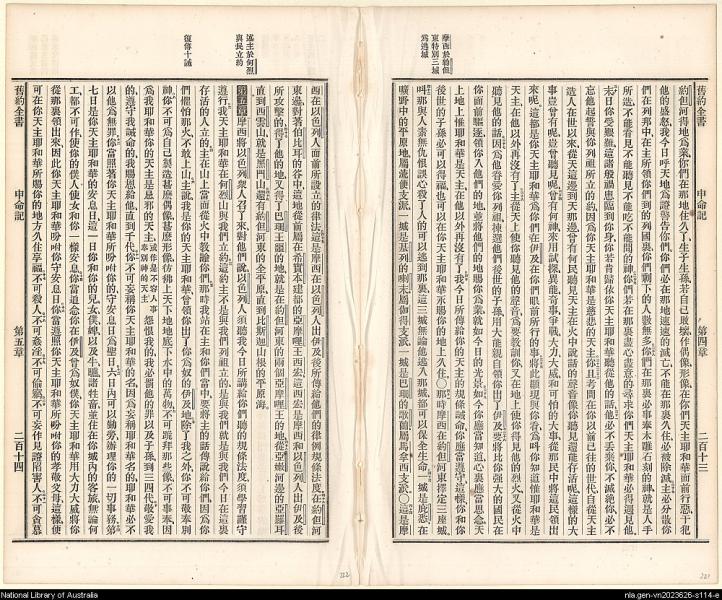 摩西於約但
東特別三城
為逃城
舊約全書 申命記 第四章 二百十三
約但河得地為業你們在那地住久了生子生孫若自己敗壞作偶像形像在你們天主耶和華面前行惡干犯
他的盛怒我今日呼天地為證警告你們你們必在那地速速的滅亡不能在那裏久住必被除滅主必分散你
們在列邦中在主所領你們到的列國裏你們剩下的人數無多你們在那裏必事奉木雕石刻的神就是人手
所造不能看見不能聽見不能吃不能聞的神你們若在那裏盡心盡意的尋求你們天主耶和華必得遇見他
末日你受艱難這諸般禍患臨到你身你若肯歸依你天主耶和華聽從他的話他必不丟棄你不滅絕你必不
忘他起誓與你列祖所立的約因為你天主耶和華是慈悲的天主你且考問在你以前已往的世代自從天主
造人在世以來從天這邊到天那邊曾有何民聽見天主在火中說話的聲音像你聽見還能存活呢這樣的大
事豈曾有呢豈曾聽見呢曾有何神來用試探異能奇事爭戰大力大威和可怕的大事從那民中將這民領出
來呢這都是你天主耶和華為你們在伊及在你們眼前所行的事將此顯現與你看為叫你知道惟耶和華是
天主在他以外再沒有了主從天上使你聽見他的聲音為要教訓你又在地上使你得見他的烈火又從火中
聽見他的話因為他眷愛你列祖揀選他們後世的子孫用大能親自領你出了伊及要將比你強大的國民在
你面前驅逐領你入他們的地並將他們的地賜你為業就如今日的光景如今你應當知道心裏應當思念天
上地上惟耶和華是天主在他以外再沒有了我今日所傳給你的天主的規條誡命你應當遵守這樣你和你
後世的子孫必可以得福也可以在你天主耶和華永賜你的地上久住○那時摩西在約但河東擇定三座城
叫那與人素無仇恨誤心殺了人的可以逃到那裏這三城無論他逃入那城都可以保全生命一城是庇悉在
曠野中的平原地屬流便支派一城是基列的喇末屬伽得支派一城是巴珊的歌蘭屬馬拿西支派○這是摩
述主於何烈
與民立約
復傳十誡
西在以色列人面前所設立的律法這是摩西在以色列人出伊及後所傳給他們的律例規條法度在約但河
東邊對著伯比珥的谷中這地從前屬在希實本建都的亞摩哩王西宏這西宏是摩西和以色列人出伊及後
所攻擊的得了他的地又得了巴珊王噩的地就是在約但河東的兩個亞摩哩王的地從亞嫩河邊的亞羅珥
直到西雲山就是黑門山還有約但河東的全平原直到比斯迦山根的平原海
第五章 摩西將以色列眾人召了來對他們說以色列人聽我今日所講給你們聽的規條法度須學習謹守
遵行我天主耶和華在何烈山與我們立約這約主不是與我們列祖立的是與我們就是與我們今日在這裏
存活的人立的主在山上當面從火中教諭你們那時我站在主和你們當中要將主的話傳說給你們因為你
們懼怕那火不敢上山主說我是你的天主耶和華曾領你出了你為奴的伊及地除了我之外你不可敬奉別
神你不可為自己製造甚麼偶像甚麼形像彷彿上天下地地底下水中的萬物不可跪拜那些像不可事奉因
為我耶和華你的天主是忌邪的天主怨恨我的我必罰他的罪以及子孫到三四代敬愛我
的遵守我誡命的我賜恩給他直到千代你不可妄稱你天主耶和華的名因為妄稱耶和華名的耶和華必不
以他為無罪你當照著你天主耶和華所吩咐你的守安息日為聖日六日內可以勤勞辦理你的一切事務第
七日是你天主耶和華的安息日這一日你和你的兒女僕婢以及牛驢諸牲畜並住在你城內的客旅無論何
工都不可作使你的僕人使女和你一樣安息你當追念你在伊及曾為奴僕你天主耶和華用大力大威將你
從那裏領出來因此你天主耶和華吩咐你守安息日你當遵照你天主耶和華所吩咐你的孝敬父母這樣使
可在你天主耶和華所賜你的地方久住享福不可殺人不可姦淫不可偷竊不可妄作見證陷害人不可貪慕
舊約全書 申命記 第五章 二百十四
National Library of Australia
nla.gen-vn2023626-s114-e